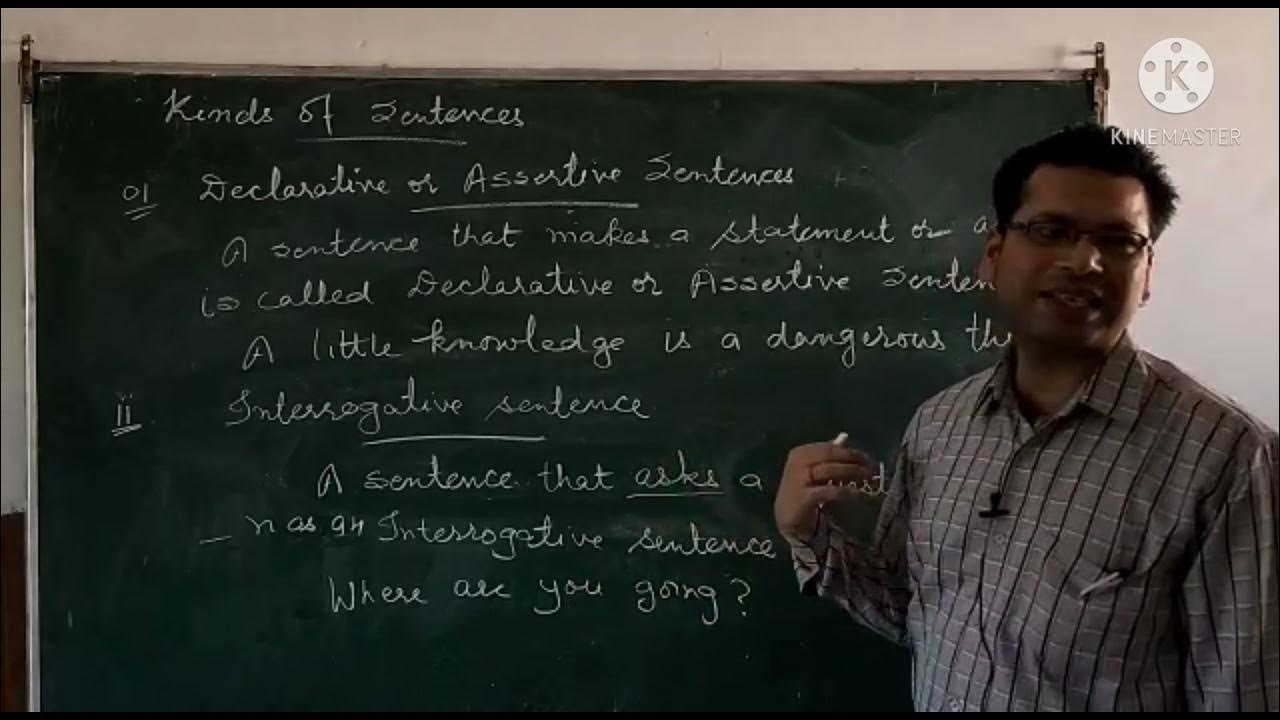 Kinds of Sentences
01 Declarative or Assertive Sentences
A sentence that makes a statement or
is called Declarative or Assertive Senten
A little knowledge is a dangerous th
ii Interrogative sentence
A sentence that asks a
n as an Interrogative sentence
Where are you going?
K
KINEMASTER